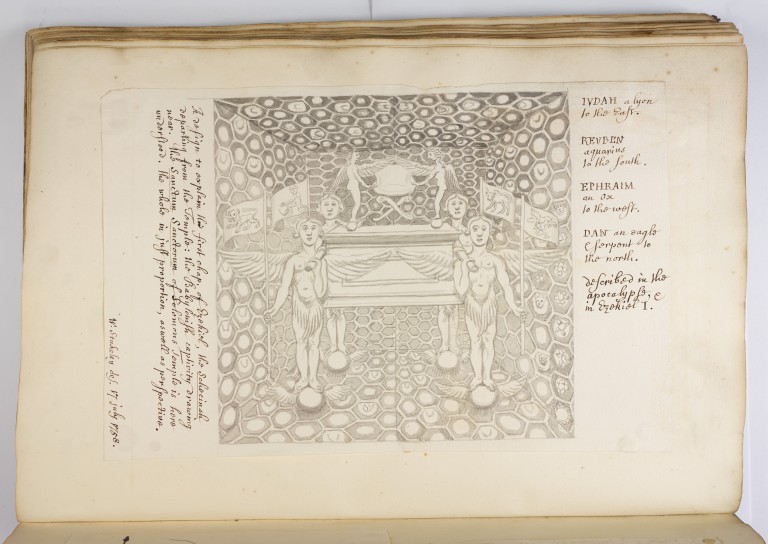 IVDAH a lyon
to the East.
REVBEN
aquarius
to the south.
EPHRAIM
an ox
to the west.
DAN an eagle
& serpent to
the north.
described in the
apocalypse, &
in Ezekiel I.
A design to explain the first chap. of Ezekiel, the Schecinah
departing from the Temple: the Babylonish captivity drawing
near. the Sanctum Sanctorum of Solomons Temple is here
understood. the whole in just proportion, as well as perspective.
W. Stukeley del. 17 july 1758.